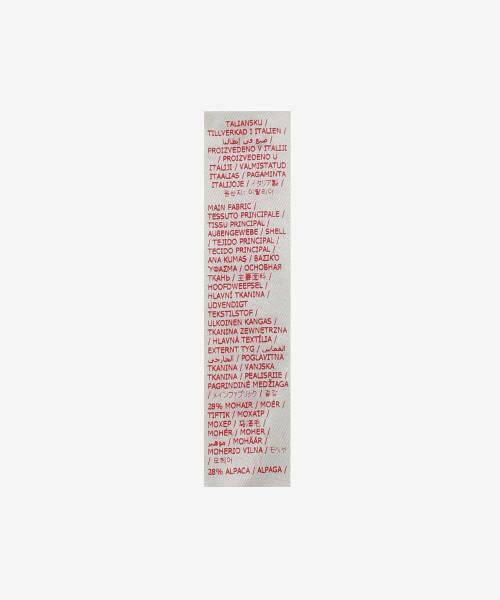 TALIANSKU /
TILLVERKAD I ITALIEN /
صنع في إيطاليا /
PROIZVEDENO V ITALIJI
/ PROIZVEDENO U
ITALIJI / VALMISTATUD
ITAALIAS / PAGAMINTA
ITALIJOJE / イタリア製 /
원산지: 이탈리아
MAIN FABRIC /
TESSUTO PRINCIPALE /
TISSU PRINCIPAL /
AUßENGEWEBE / SHELL
/ TEJIDO PRINCIPAL /
TECIDO PRINCIPAL /
ANA KUMAŞ / ΒΑΣΙΚΌ
ΎΦΑΣΜΑ / ОСНОВНАЯ
ТКАНЬ / 主要面料 /
HOOFDWEEFSEL /
HLAVNÍ TKANINA /
UDVENDIGT
TEKSTILSTOF /
ULKOINEN KANGAS /
TKANINA ZEWNĘTRZNA
/ HLAVNÁ TEXTÍLIA /
EXTERNT TYG / القماش
الخارجي / POGLAVITNA
TKANINA / VANJSKA
TKANINA / PEALISRIIE /
PAGRINDINĖ MEDŽIAGA
/ メインファブリック / 겉감
28% MOHAIR / MOER /
TIFTIK / ΜΟΧΑΙΡ /
МОХЕР / 马海毛 /
MOHÉR / MOHER /
موهير / MOHÄÄR /
MOHERIO VILNA / モヘヤ
/ 모헤어
28% ALPACA / ALPAGA /